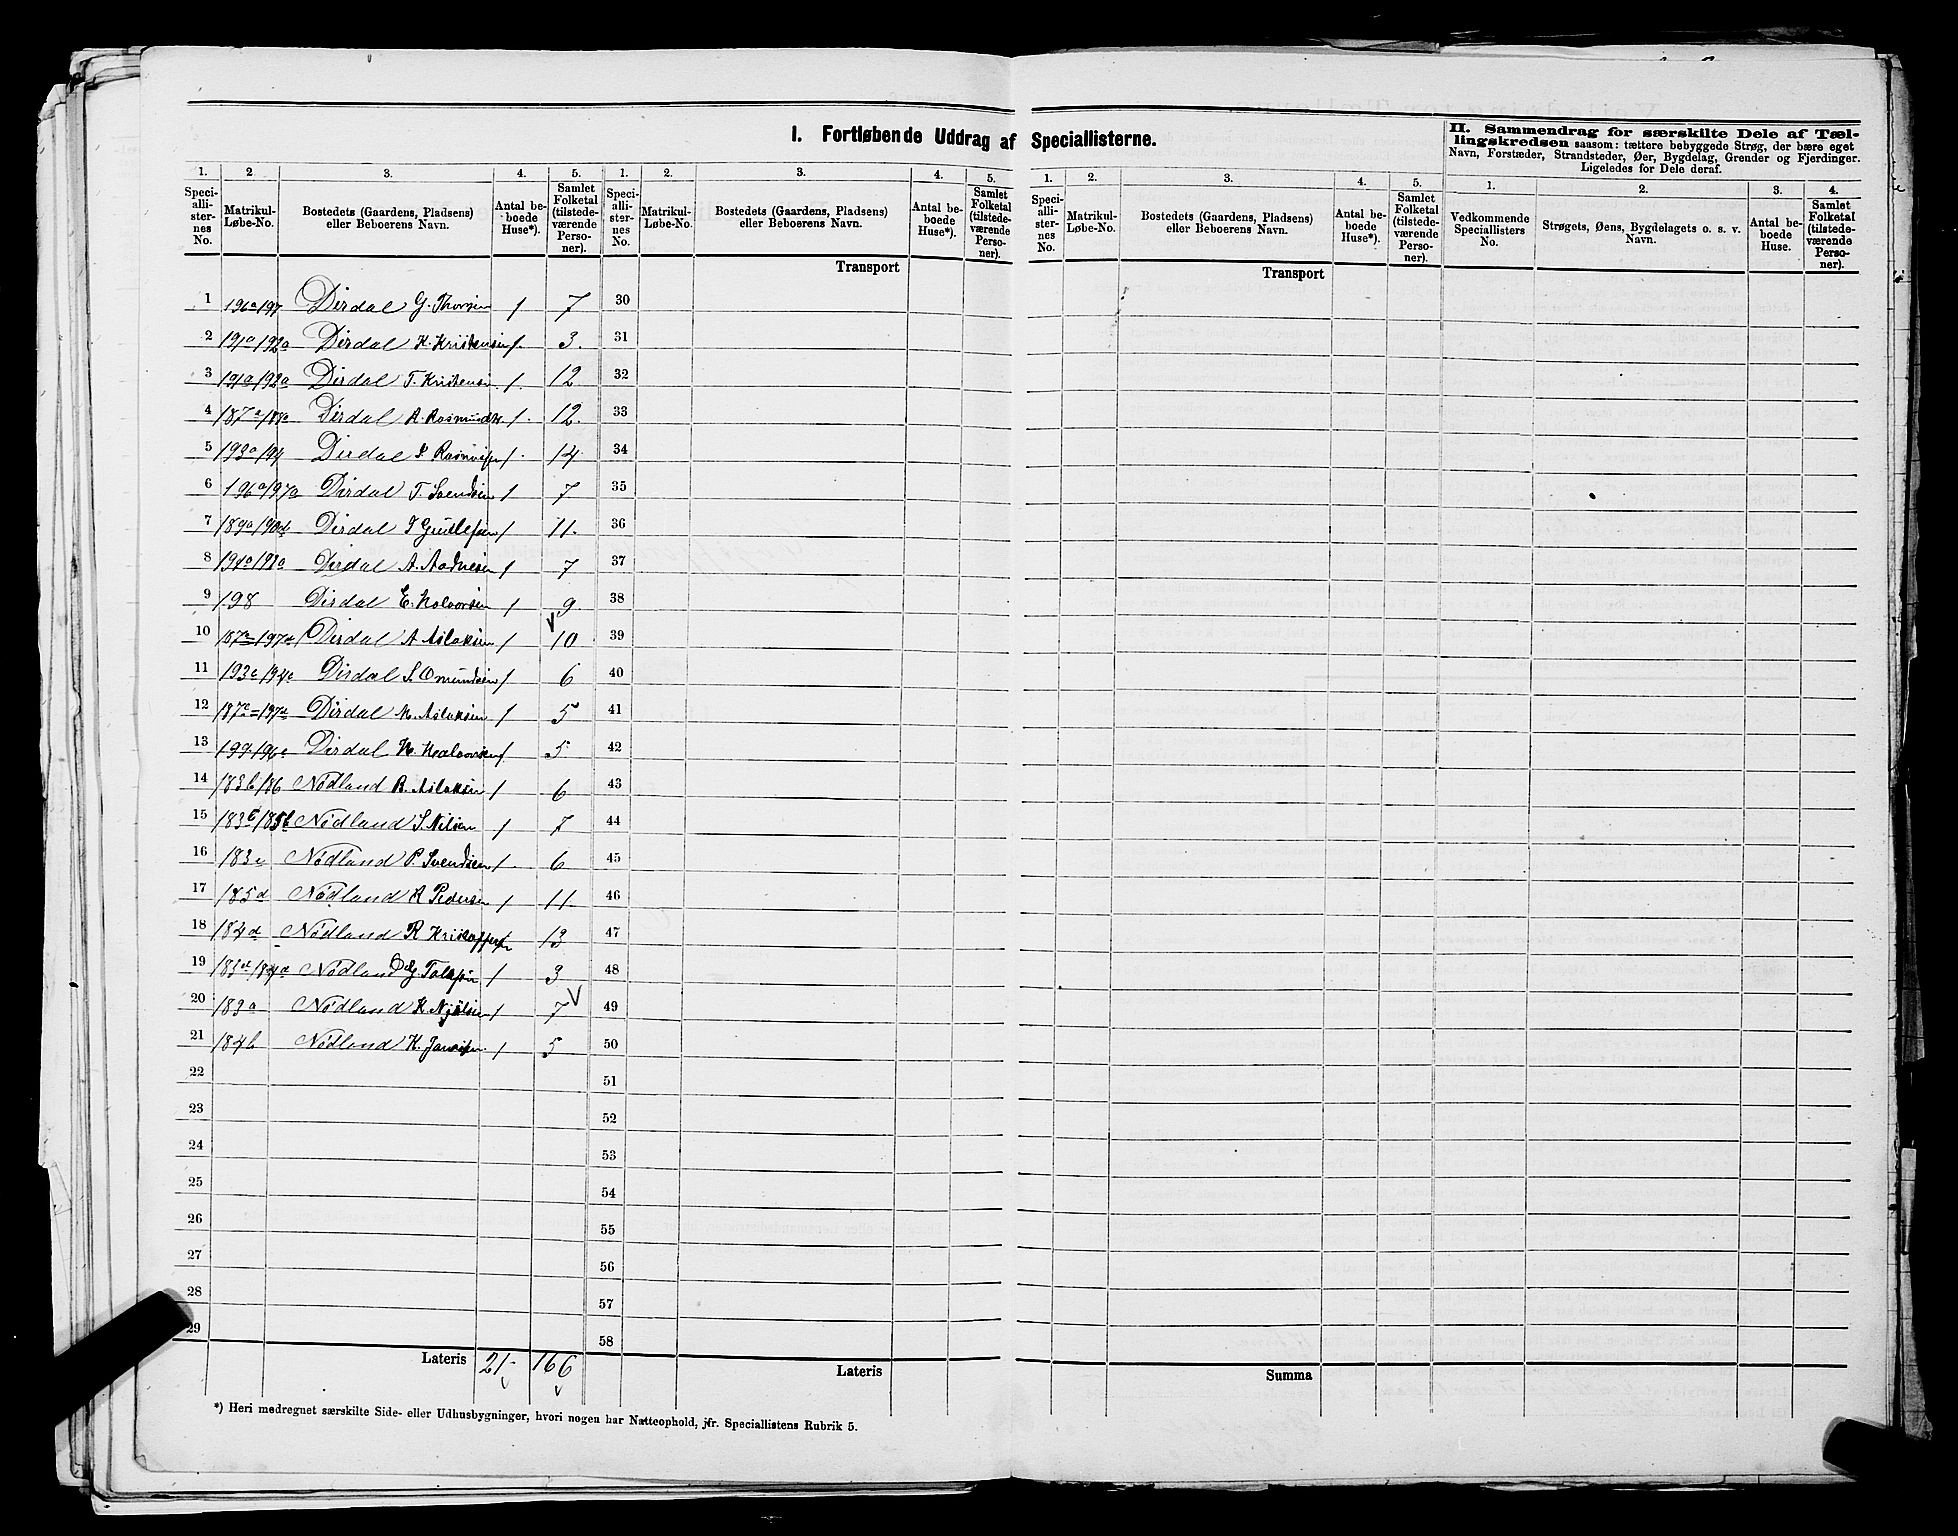 I. Fortløbende Uddrag af Speciallisterne.
II. Sammendrag for særskilte Dele af Tæl-
lingskredsen saasom: tættere bebyggede Strøg, der bære eget
Navn, Forstæder, Strandsteder, Øer, Bygdelag, Grender og Fjerdinger.
Ligeledes for Dele deraf.
1. 2. 3. 4. 5. 1. 2. 3. 4. 5. 1. 2. 3. 4. 5. 1. 2. 3. 4.
Speci-alli-ster-nes No. Matrikul-Løbe-No. Bostedets (Gaardens, Pladsens) eller Beboerens Navn. Antal be-boede Huse*). Samlet Folketal (tilstede-værende Perso-ner).
Speci-alli-ster-nes No. Matrikul-Løbe-No. Bostedets (Gaardens, Pladsens) eller Beboerens Navn. Antal be-boede Huse*). Samlet Folketal (tilstede-værende Perso-ner).
Speci-alli-ster-nes No. Matrikul-Løbe-No. Bostedets (Gaardens, Pladsens) eller Beboerens Navn. Antal be-boede Huse*). Samlet Folketal (tilstede-værende Perso-ner).
Vedkommende Speciallisters No. Strøgets, Øens, Bygdelagets o. s. v. Navn. Antal be-boede Huse. Samlet Folketal (tilstede-værende Perso-ner).
Transport Transport
1 196a/197 Dirdal G. Thorsen 1 7 30
2 191a/192a Dirdal K. Kristensen 1. 3. 31
3 191a/192a Dirdal T. Kristensen 1. 12 32
4 187a/188a Dirdal A. Rasmunds. 1. 12. 33
5 193a/194 Dirdal 1. 14 34
6 196a/197a Dirdal T. Svendsen 1 7 35
7 Dirdal 1 11. 36
8 Dirdal A. Aadnesen 1 7 37
9 198 Dirdal E. Halvorsen 1 9 38
10 Dirdal A. Aslaksen 1 10 39
11 Dirdal S. Omundsen 1 6 40
12 Dirdal M. Aslaksen 1 5 41
13 Dirdal H. Halvorsen 1 5 42
14 183b/186 Nødland B. Aslaksen 1 6 43
15 Nødland S. Nilsen 1 7 44
16 183c Nødland P. Svendsen 1 6 45
17 185d Nødland A Pedersen 1 11 46
18 184d Nødland R Kristoffersen 1 13 47
19 Nødland 1 3 48
20 183a Nødland K. Njølsen 1 7 49
21 184b Nødland K. 1 5 50
22 51
23 52
24 53
25 54
26 55
27 56
28 57
29 58
Lateris 21- 166 Lateris Summa
*) Heri medregnet særskilte Side- eller Udhusbygninger, hvori nogen har Natteophold, jfr. Speciallistens Rubrik 5.